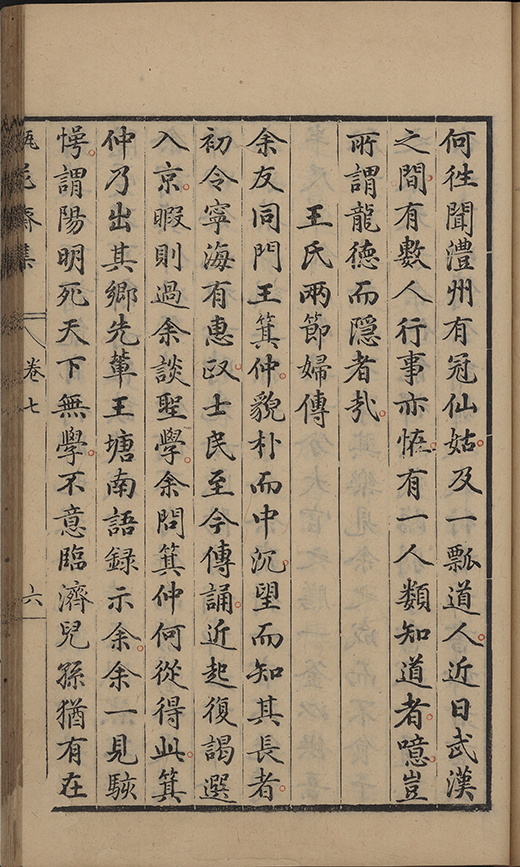 何徃聞澧州有冠仙姑及一瓢道人近日武漢
之間有數人行事亦恠有一人類知道者噫豈
所謂龍德而隱者㢤
王氏兩節婦傳
余友同門王箕仲貌朴而中沉望而知其長者
初令寧海有惠政士民至今傳誦近起復謁選
入京暇則過余談聖學余問箕仲何從得此箕
仲乃出其鄉先軰王塘南語録示余余一見駭
愕謂陽明死天下無學不意臨濟兒孫猶有在
集
卷七
六